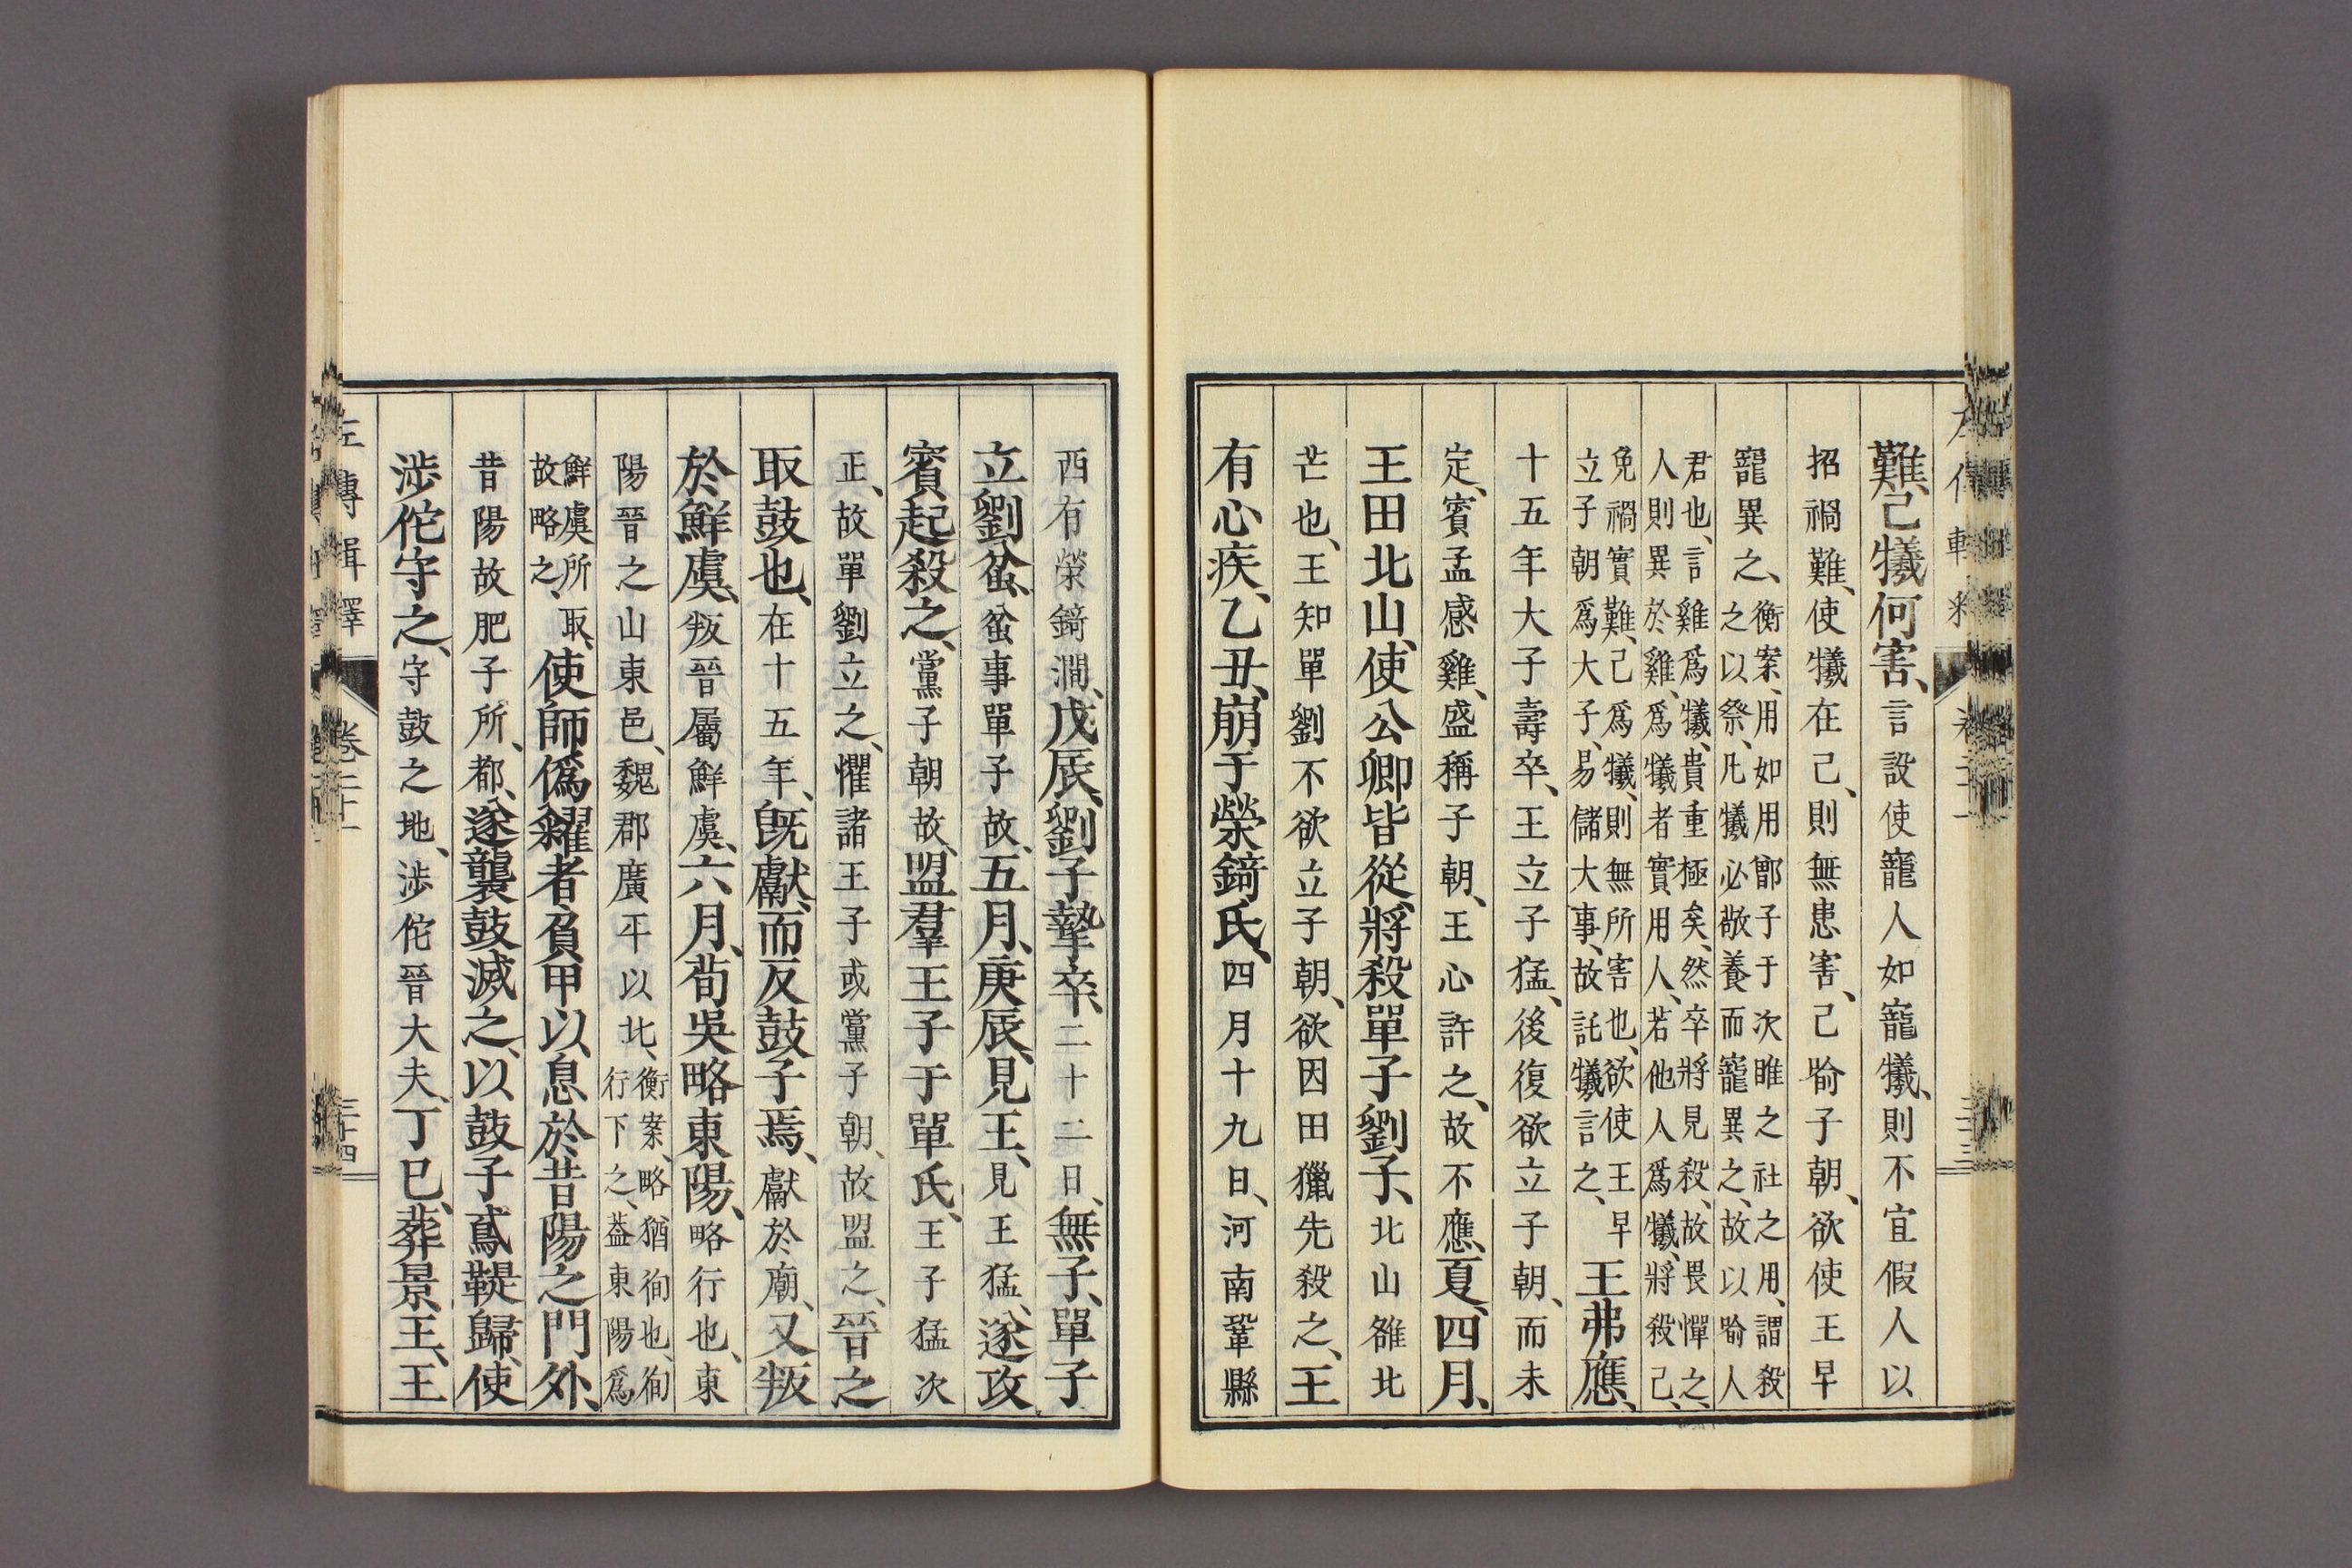 難、己犧何害、言設使寵人如寵犧、則不宜假人以
招禍難、使犧在己、則無患害、己喻子朝、欲使王早
寵異之、衡案、用如用鄫子于次睢之社之用、謂殺
之以祭、凡犧必敬養而寵異之、故以喻人
君也、言雞爲犧、貴重極矣、然卒將見殺、故畏憚之、
人則異於雞、爲犧者實用人、若他人爲犧、將殺己、
免禍實難、己爲犧、則無所害也、欲使王早
立子朝爲大子、易儲大事、故託犧言之、王弗應、
十五年大子壽卒、王立子猛、後復欲立子朝、而未
定、賓孟感雞、盛稱子朝、王心許之、故不應、夏、四月、
王田北山、使公卿皆從、將殺單子劉子、北山雒北
芒也、王知單劉不欲立子朝、欲因田獵先殺之、王
有心疾、乙丑、崩于榮錡氏、四月十九日、河南鞏縣
西有榮錡澗、戊辰、劉子摯卒、二十二日、無子、單子
立劉蚠、蚠事單子故、五月、庚辰、見王、見王猛、遂攻
賓起殺之、黨子朝故、盟羣王子于單氏、王子猛次
正、故單劉立之、懼諸王子或黨子朝、故盟之、晉之
取鼓也、在十五年、旣獻、而反鼓子焉、獻於廟、又叛
於鮮虞、叛晉屬鮮虞、六月、荀吳略東陽、略行也、東
陽晉之山東邑、魏郡廣平以北、衡案、略猶徇也、徇
行下之、蓋東陽爲
鮮虞所取、
故略之、使師僞糴者負甲以息於昔陽之門外、
昔陽故肥子所都、遂襲鼓滅之、以鼓子鳶鞮歸、使
涉佗守之、守鼓之地、涉佗晉大夫、丁巳、葬景王、王
左傳輯釋 卷二十一 三十四